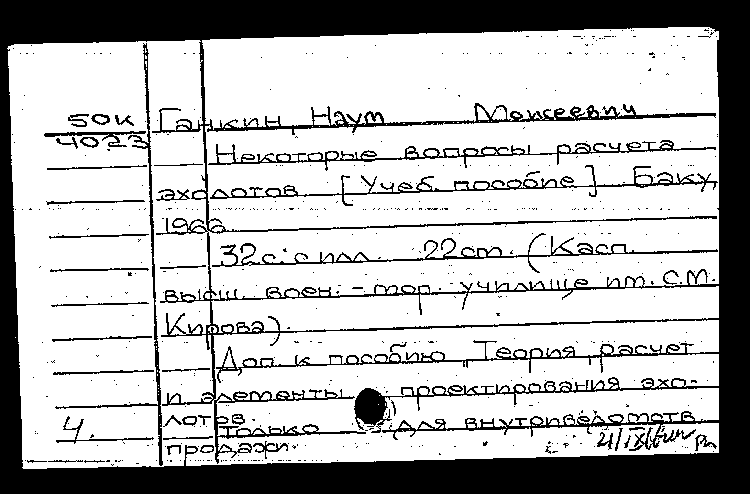 50К Ганкин, Наум Моисеевич
4023
Некоторые вопросы расчета
эхолотов. [Учеб. пособие] Баку,
1966.
32с. с илл. 22 cm. (Касп.
высш. воен.-мор. училище им. С.М.
Кирова).
Доп. к пособию „Теория, расчет
и элементы проектирования эхо-
лотов.
Только для внутриведомств.
4.
продажи.